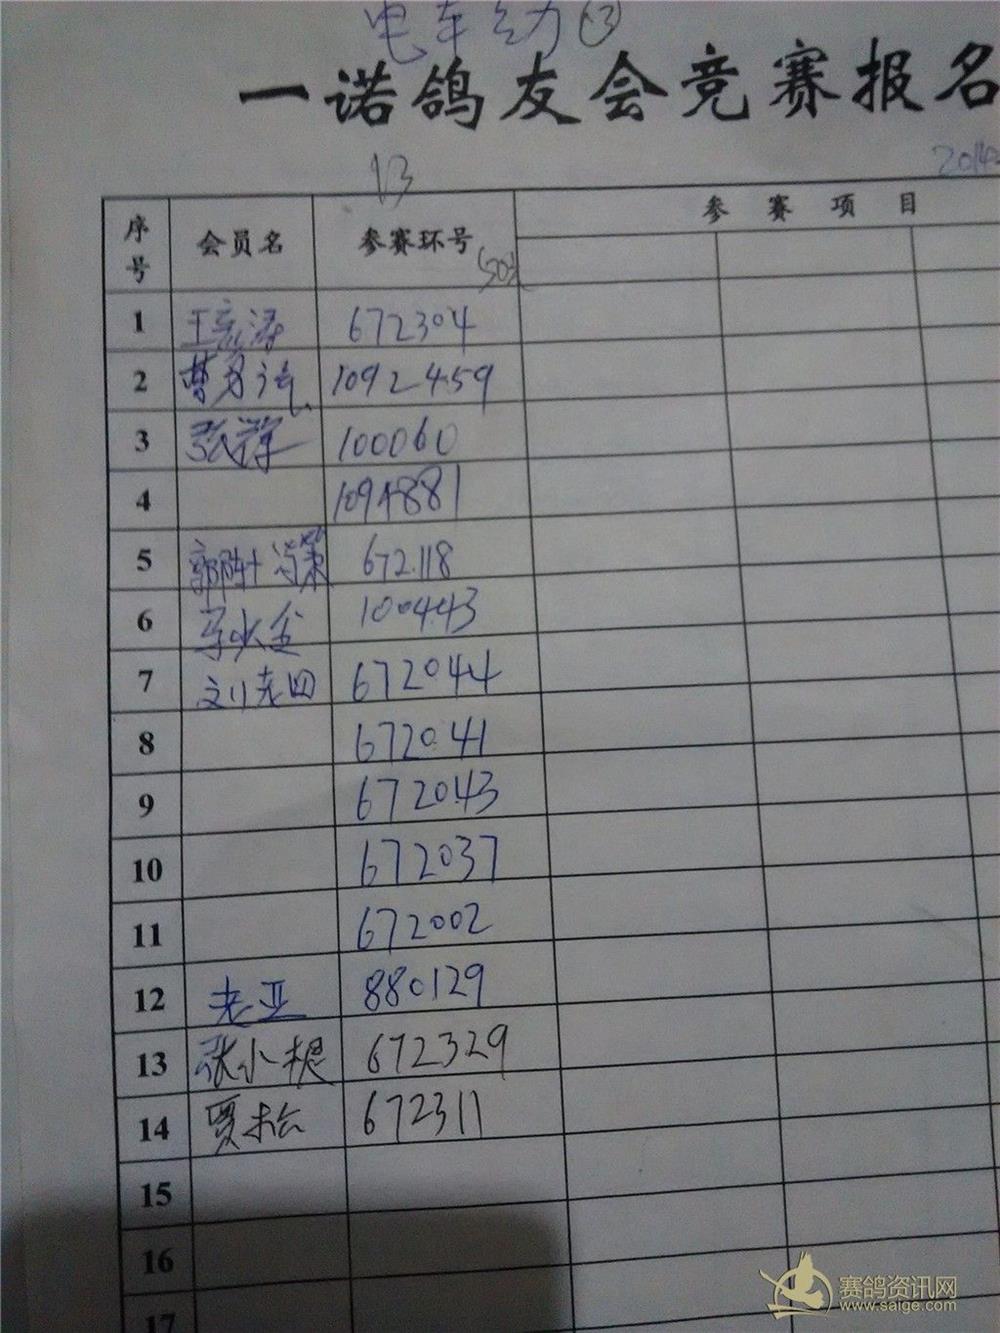 电车
一诺鸽友会竞赛报名
13
2014
序号 会员名 参赛环号 参赛项目
(50
1 王彦涛 672304
2 曹 1092459
3 张祥 100060
4 1094881
5 郭胖+冯荣 672118
6 100443
7 刘老四 672044
8 672041
9 672043
10 672037
11 672002
12 老亚 880129
13 张小根 672329
14 贾松 672311
15
16
17
赛鸽资讯网
www.saige.com